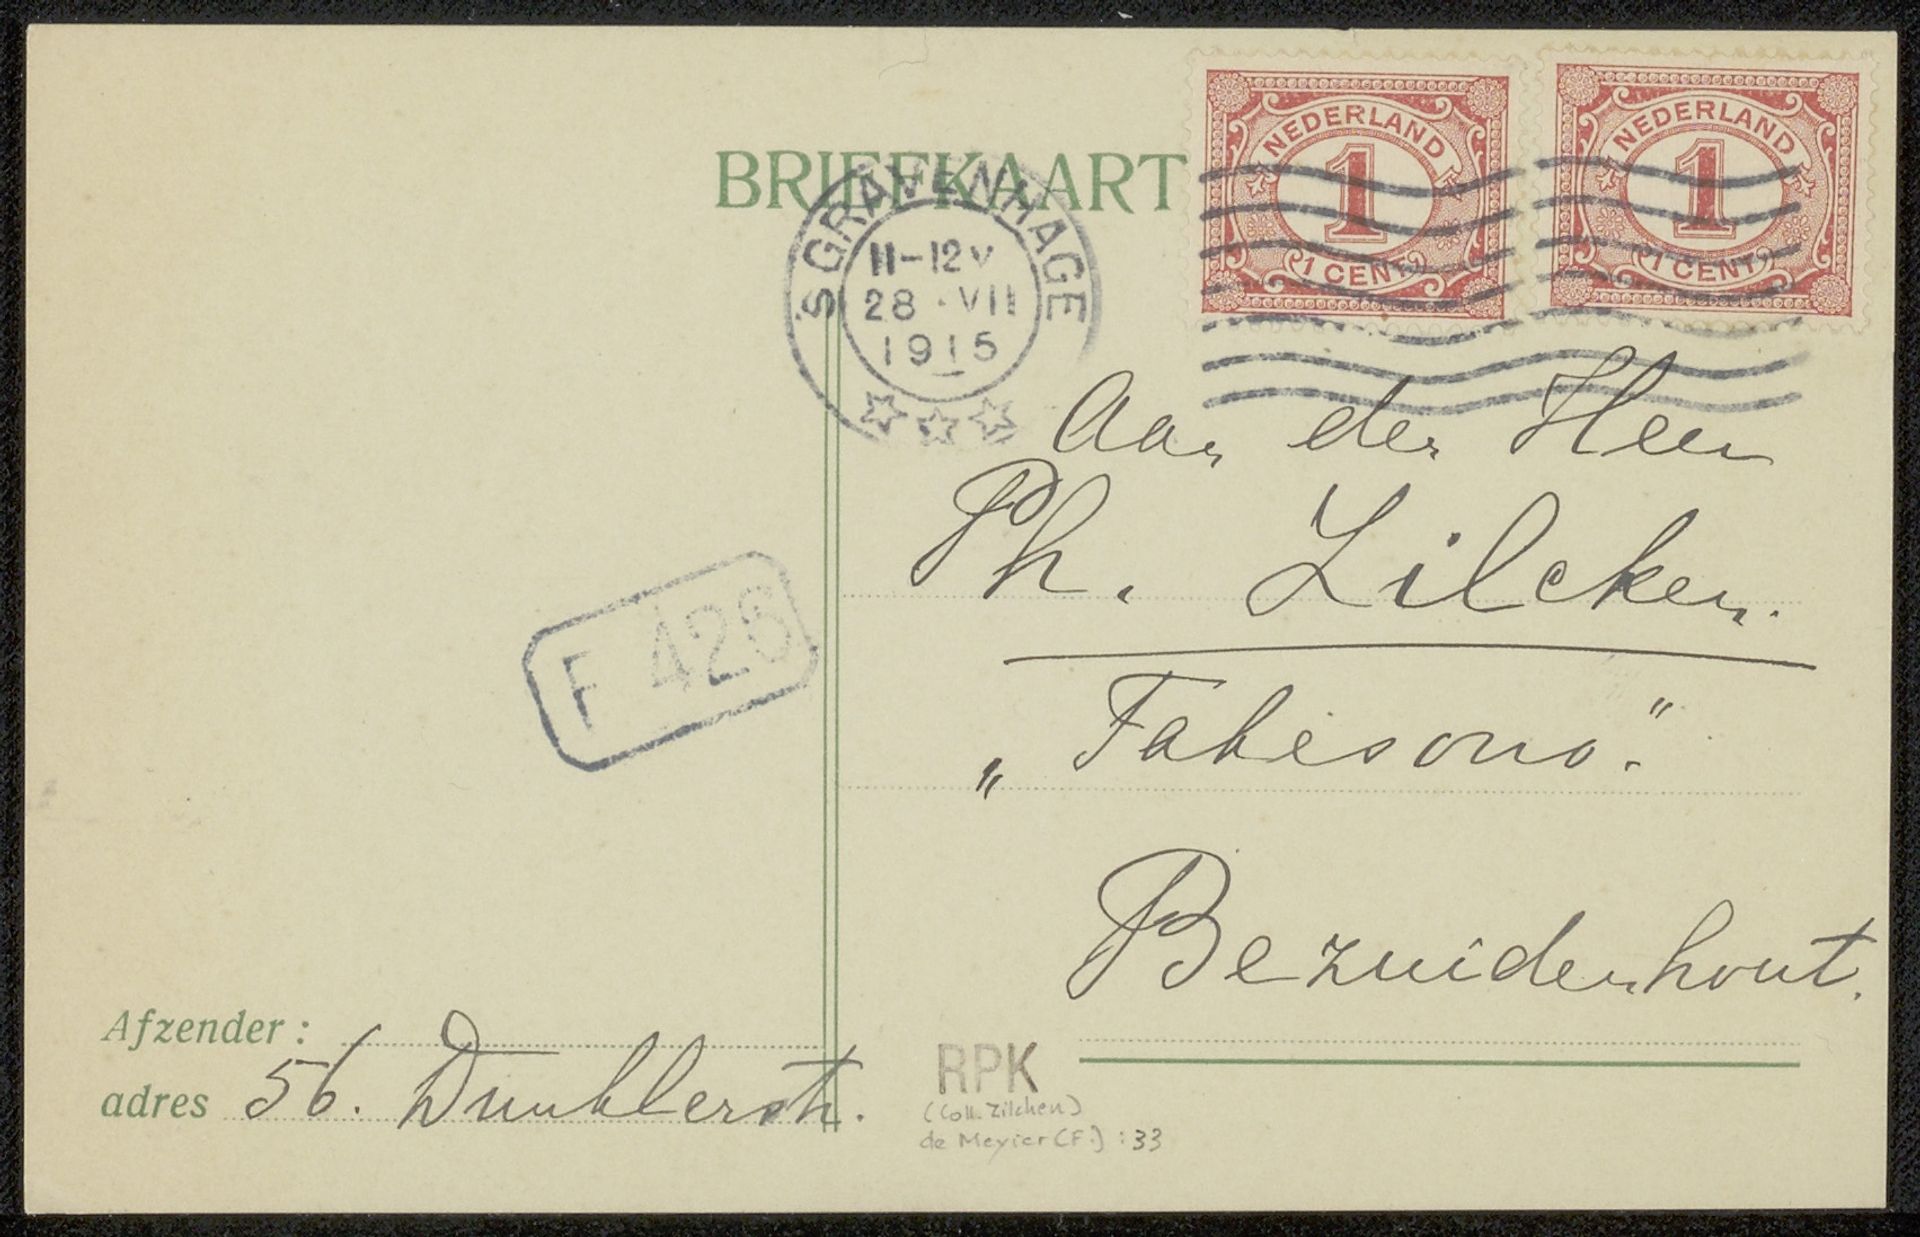 BRIEFKAART
NEDERLAND
1
1 CENT
NEDERLAND
1
1 CENT
'S GRAVENHAGE
11-12V
28 · VII
1915
Aan den Heer
Ph. Zilcken.
F 426
„Fakesono".
Bezuidenhout.
Afzender:
adres 56. Dunklerstr.
RPK
(Coll. Zilcken)
de Meyier (F.) : 33